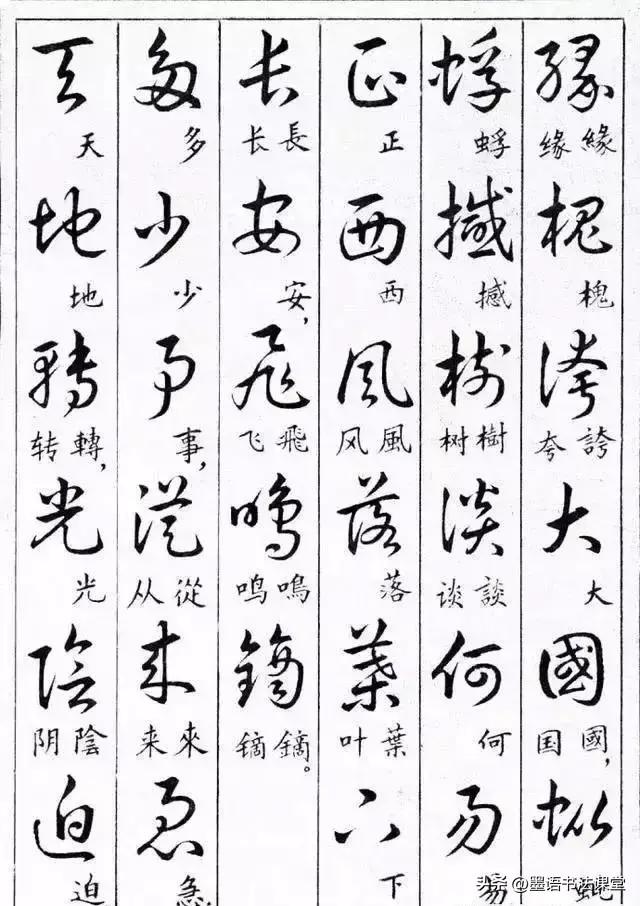 緣槐誇大國蚍
緣缘 槐 誇夸 大 國，国 蚍
蜉撼樹談何易
蜉 撼 樹树 談谈 何 易
正西風落葉下
正 西 風风 落 葉叶 下
長安飛鳴鏑
長长 安， 飛飞 鳴鸣 鏑。镝
多少事從來急
多 少 事， 從从 來来 急
天地轉光陰迫
天 地 轉，转 光 陰阴 迫
头条 @墨语书法课堂